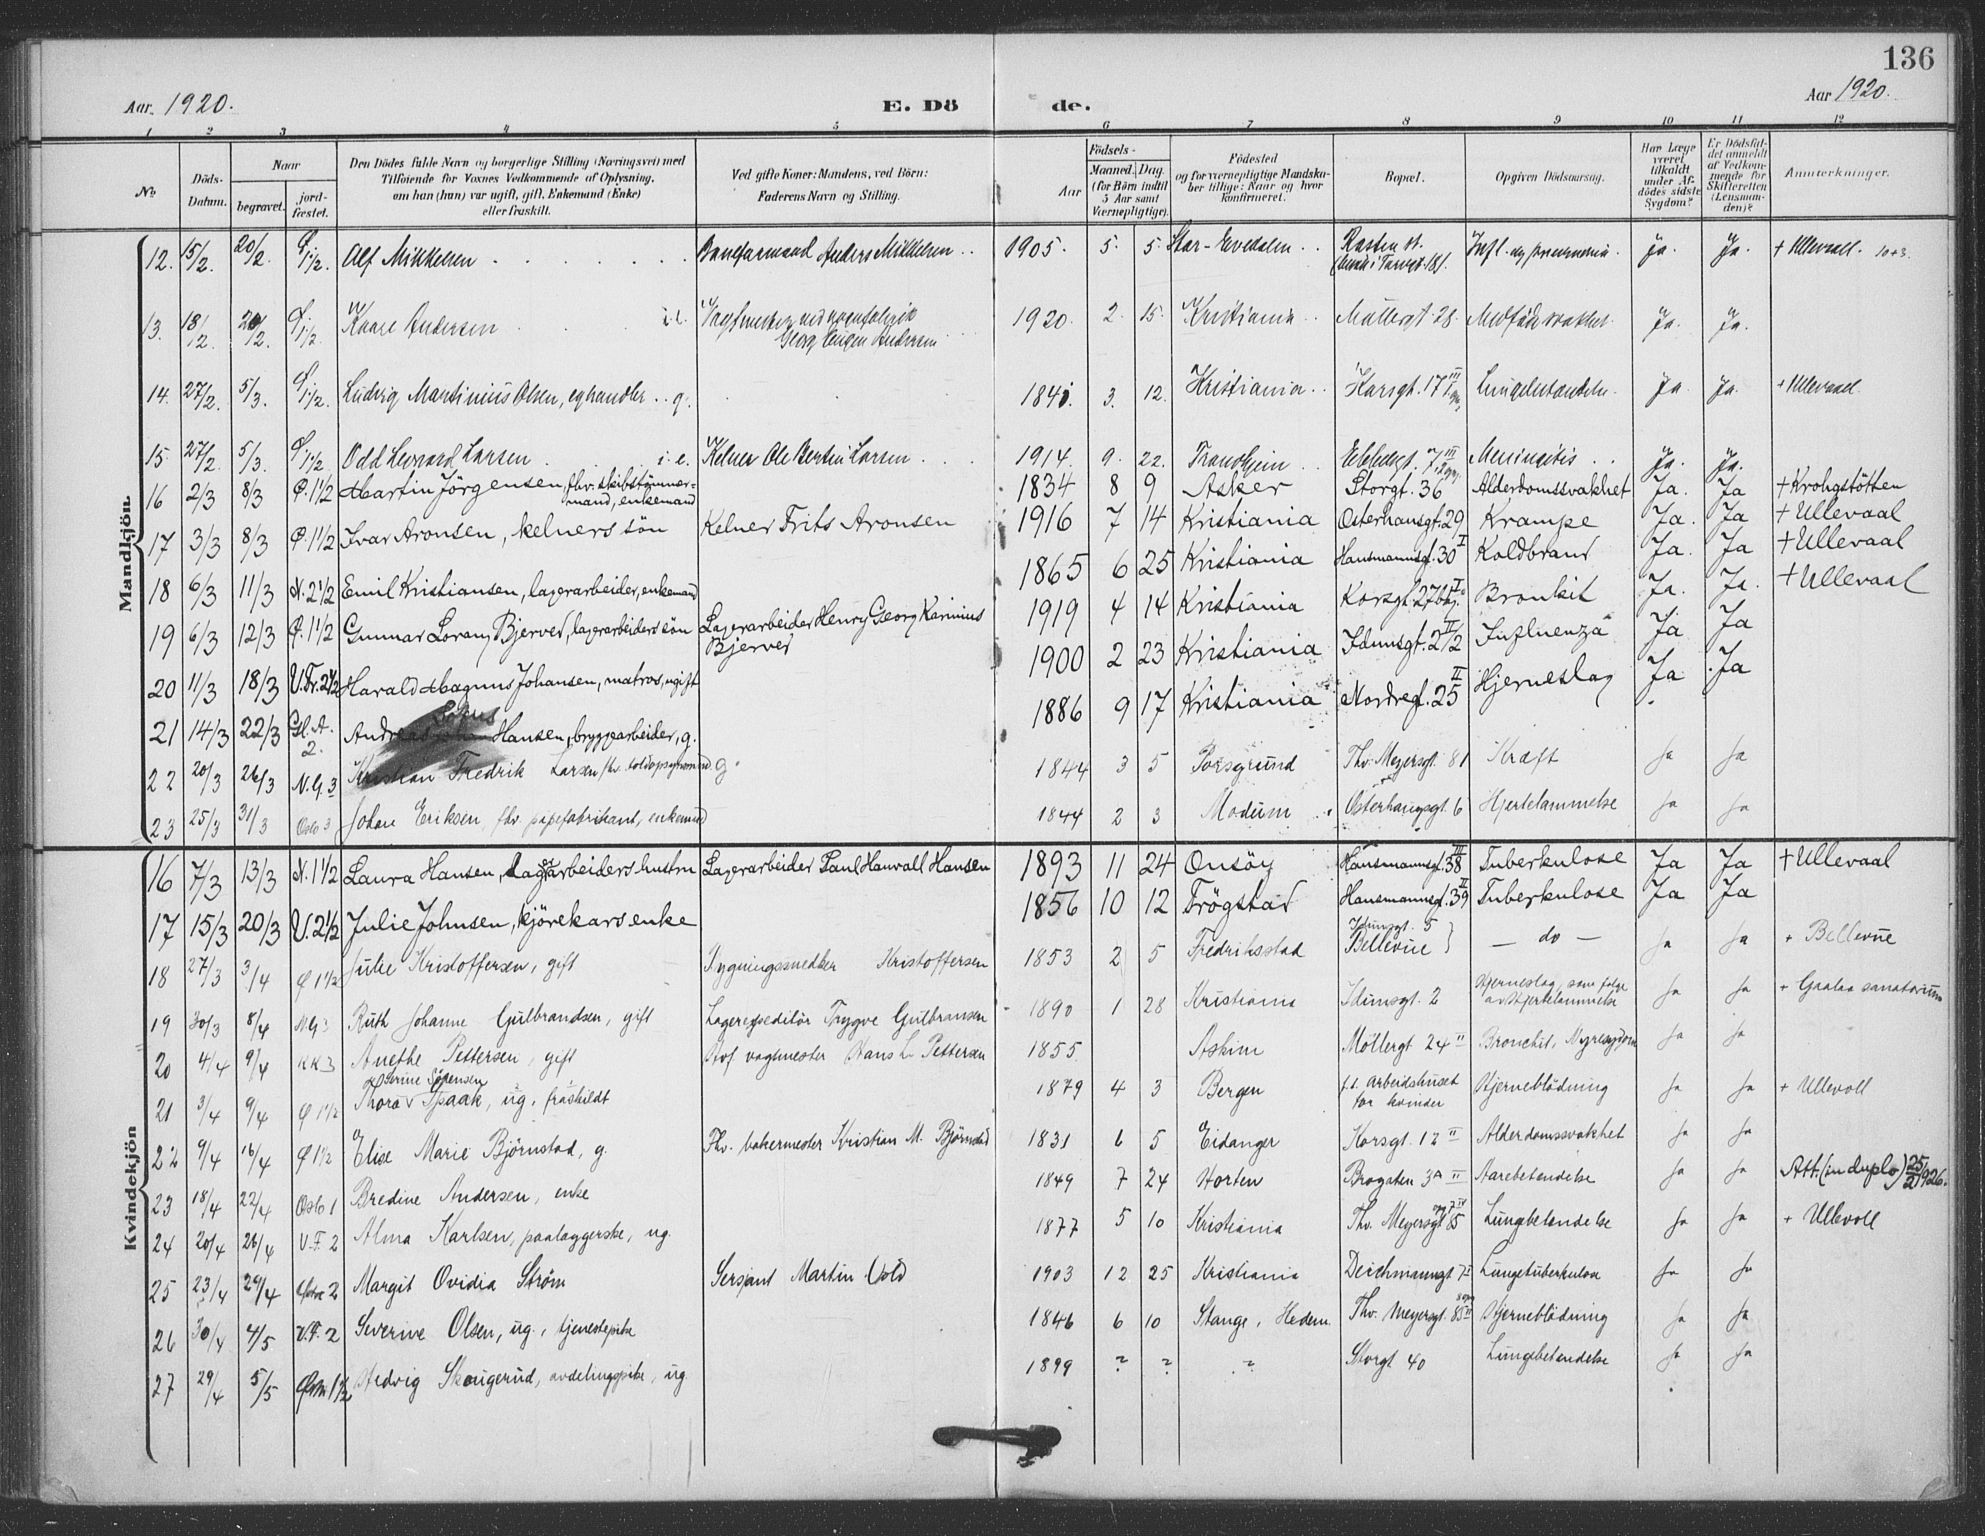 136
Aar. 1920.
E. Dö
de.
Aar 1920.
1 2 3 4 5 6 7 8 9 10 11 12
No
Döds-Datum.
Naar
begravet.
jord-fæstet.
Den Dödes fulde Navn og borgerlige Stilling (Næringsvei) med
Tilföiende for Voxnes Vedkommende af Oplysning,
om han (hun) var ugift, gift, Enkemand (Enke)
eller fraskilt.
Ved gifte Koner: Mandens, ved Börn:
Faderens Navn og Stilling.
Födsels-
Aar
Maaned. Dag.
(for Börn indtil
5 Aar samt
Værnepligtige).
Födested
og for værnepligtige Mandska-
ber tillige: Naar og hvor
konfirmeret.
Bopæl.
Opgiven Dödsaarsag.
Har Læge
været
tilkaldt
under Af-
dödes sidste
Sygdom?
Er Dödsfal-
det anmeldt
af Vedkom-
mende for
Skifteretten
(Lensman-
den)?
Anmærkninger.
Mandkjön
12. 15/2. 20/2. 1/2. Alf Mikkelsen Anders Mikkelsen 1905. 5. 5 ja. Ja. + Ullevaal. 10+3.
13. 18/2 20/2. 1/2. Kaare Andersen Georg Eugen Andersen 1920. 2. 15. Kristiania Møllergt 28. Medfødt svakhet. Ja. Ja.
14. 27/2. 5/3. 1/2. Ludvig Martinius Olsen, eghandler g. 3. 12. Kristiania Korsgt. 17 III Lungebetændelse. Ja. Ja. + Ullevaal.
15 27/2. 5/3. 1 1/2 Odd Leonard Larsen i.e. Kelner Ole Bertin Larsen 1914. 9. 22. Trondhjem Meningitis Ja. Ja.
16 2/3 8/3 P. 1 1/2 Martin Jörgensen, fhv. skibstömmer-
mand, enkemand 1834 8 9 Asker Storgt. 36 Alderdomssvakhet Ja. Ja + Krohgstötten
17 3/3 8/3 P. 1 1/2 Ivar Aronsen, kelners sön Kelner Frits Aronsen 1916 7 14 Kristiania Osterhausgt. 29 Krampe Ja. Ja + Ullevaal
18 6/3 11/3 N. 2 1/2 Emil Kristiansen, lagerarbeider, enkemand 1865 6 25 Kristiania Hausmannsgt. 30 I Koldbrand Ja. Ja + Ullevaal
19 6/3 12/3 P. 1 1/2 Gunnar Lorang Bjerved, lagerarbeiders sön Lagerarbeider Henry Georg Karinius
Bjerved 1919 4 14 Kristiania Korsgt. 27 Bronkit Ja. Ja. + Ullevaal
20 11/3 18/3 V. Fr. 2 1/2 Harald Magnus Johansen, matros, ugift 1900 2 23 Kristiania Idunsgt. 2 1/2 II Influenza Ja Ja
21 14/3 22/3 Gl. A. 2. Andreas Hansen, bryggearbeider, g. 1886 9 17 Kristiania Nordregt. 25 II Hjerneslag Ja Ja
22 20/3 26/3 N.G. 3 Kristian Fredrik Larsen fhv. toldopsynsmand g. 1844 3 5 Porsgrund Thv. Meyersgt. 81 Kræft Ja Ja
23 25/3 31/3 Oslo 3 Johan Eriksen, fhv. pipefabrikant, enkemand 1844 2 3 Modum Osterhausgt. 6 Hjertelammelse Ja Ja
Kvindekjön
16 7/3 13/3 N. 1 1/2 Laura Hansen, lagerarbeiders hustru Lagerarbeider Paul Hanvall Hansen 1893 11 24 Onsöy Hausmannsgt. 38 III Tuberkulose Ja Ja + Ullevaal
17 15/3 20/3 V. 2 1/2 Julie Johnsen, kjörekars enke 1856 10 12 Trögstad Hausmannsgt. 39 II Tuberkulose Ja Ja
18 27/3 3/4 P 1 1/2 Julie Kristoffersen, gift Bygningssnedker Kristoffersen 1853 2 5 Fredriksstad Idunsgt. 5
Bellevue } — do — Ja Ja + Bellevue
19 30/3 8/4 N.G. 3 Ruth Johanne Gulbrandsen, gift Lagerexpeditør Trygve Gulbransen 1890 1 28 Kristiania Idunsgt. 2 Hjerneslag, som følge
av Hjertelammelse Ja Ja + Gralaa sanatorium
20 4/4 9/4 K.K. 3 Anethe Pettersen, gift vagtmester Hans L. Pettersen 1855. Askim Möllergt 24 II Bronchit, Nyresygdom Ja Ja
21 3/4 9/4 P 1 1/2 Thora Serine Sørensen Spaak, ug. fraskildt 1879 4 3 Bergen f.t. Arbeidshuset
for kvinder Hjerneblödning Ja Ja + Ullevoll
22 9/4 16/4 P 1 1/2 Elise Marie Björnstad, g. Fhv. bakermester Kristian M. Björnstad 1831 6 5 Eidanger Korsgt. 12 II Alderdomssvakhet Ja Ja
23 18/4 22/4 Oslo 1 Bredine Andersen, enke 1849 7 24 Horten Brogaten 3A II Aarebetendelse Ja Ja Att. (in duplo) 25/2 1926.
24 20/4 26/4 V.F. 2 Alma Karlsen, paalæggerske, ug. 1877 5 10 Kristiania Thv. Meyersgt 85 Lungebetendelse Ja Ja + Ullevoll
25 23/4 29/4 2 Margit Ovidia Ström Sersjant Martin Vold 1903 12 25 Kristiania Deichmannsgt 7 Lungetuberkulose Ja Ja
26 30/4 4/5 V.F. 2 Severine Olsen, ug., tjenestepike 1846 6 10 Stange, Hedem. Thv. Meyersgt. 85 II Hjerneblödning Ja Ja
27 29/4 5/5 1 1/2 Hedvig Skougerud, avdelingspike, ug. 1899 ? ? ? Storgt 40 Lungebetendelse Ja Ja